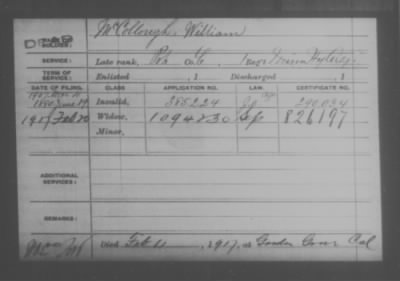 McCollough, William
NAME OF SOLDIER:
SERVICE: Late rank, Pvt Co. C, 1 Regt
TERM OF SERVICE: Enlisted , 1 Discharged , 1
DATE OF FILING. CLASS. APPLICATION NO. LAW. CERTIFICATE NO.
1880 June 19 Invalid, 385224 290034
1917 Feb 20 Widow, 1094830 826197
Minor,
ADDITIONAL SERVICES:
REMARKS:
Died Feb 11, 1917, at Cal